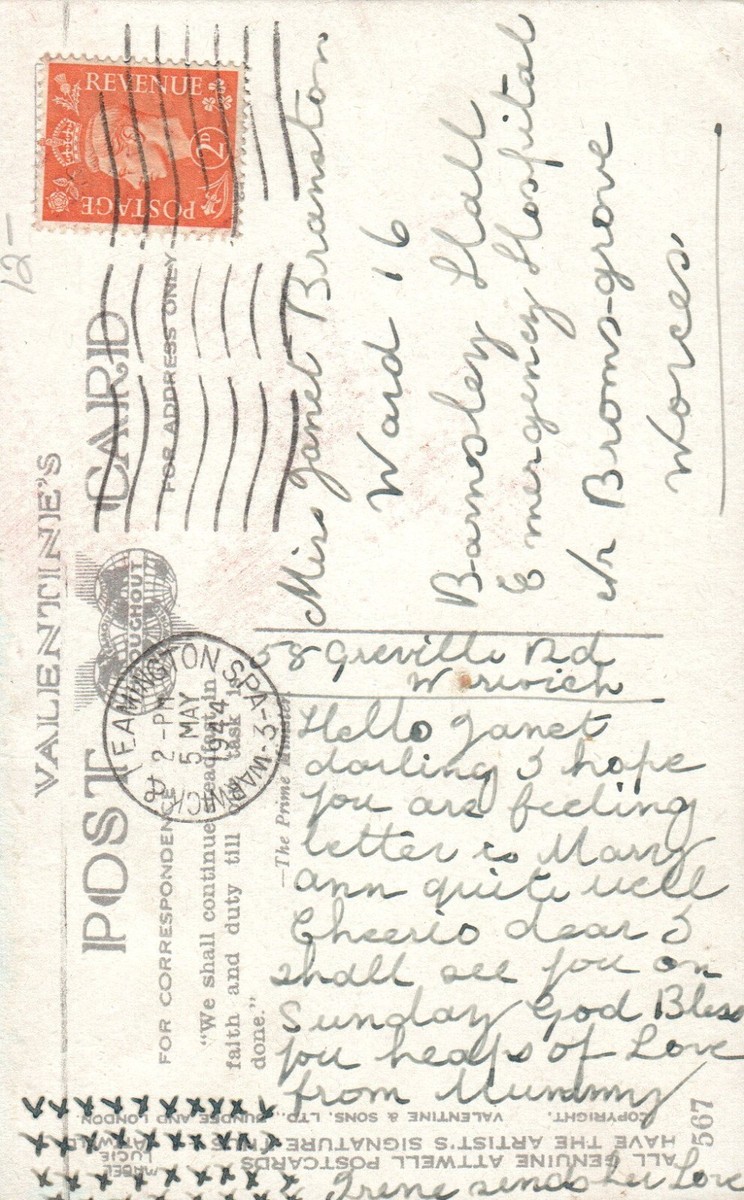 REVENUE
2D
POSTAGE
12-
VALENTINE'S
POST CARD
FOR CORRESPONDENCE
FOR ADDRESS ONLY
LEAMINGTON SPA-3-WARWICK
2-PM
5 MAY
1944
"We shall continue steadfast in
faith and duty till our task is
done."
—The Prime Minister.
Miss Janet Branston
Ward 16
Barnsley Hall
Emergency Hospital
Nr Broms-grove
Worces
58 Greville Rd
Warwick
Hello Janet
darling I hope
you are feeling
letter is Marry
ann quite well
Cheerio dear I
shall see you on
Sunday God Bless
you heaps of Love
from Mummy
xxxxxxxxxxx
xxxxxxxxxx
xxxxxxxxx
Irene sends her Love
ALL GENUINE ATTWELL POSTCARDS
HAVE THE ARTIST'S SIGNATURE THUS
MABEL
LUCIE
ATTWELL
COPYRIGHT. VALENTINE & SONS, LTD., DUNDEE AND LONDON.
567